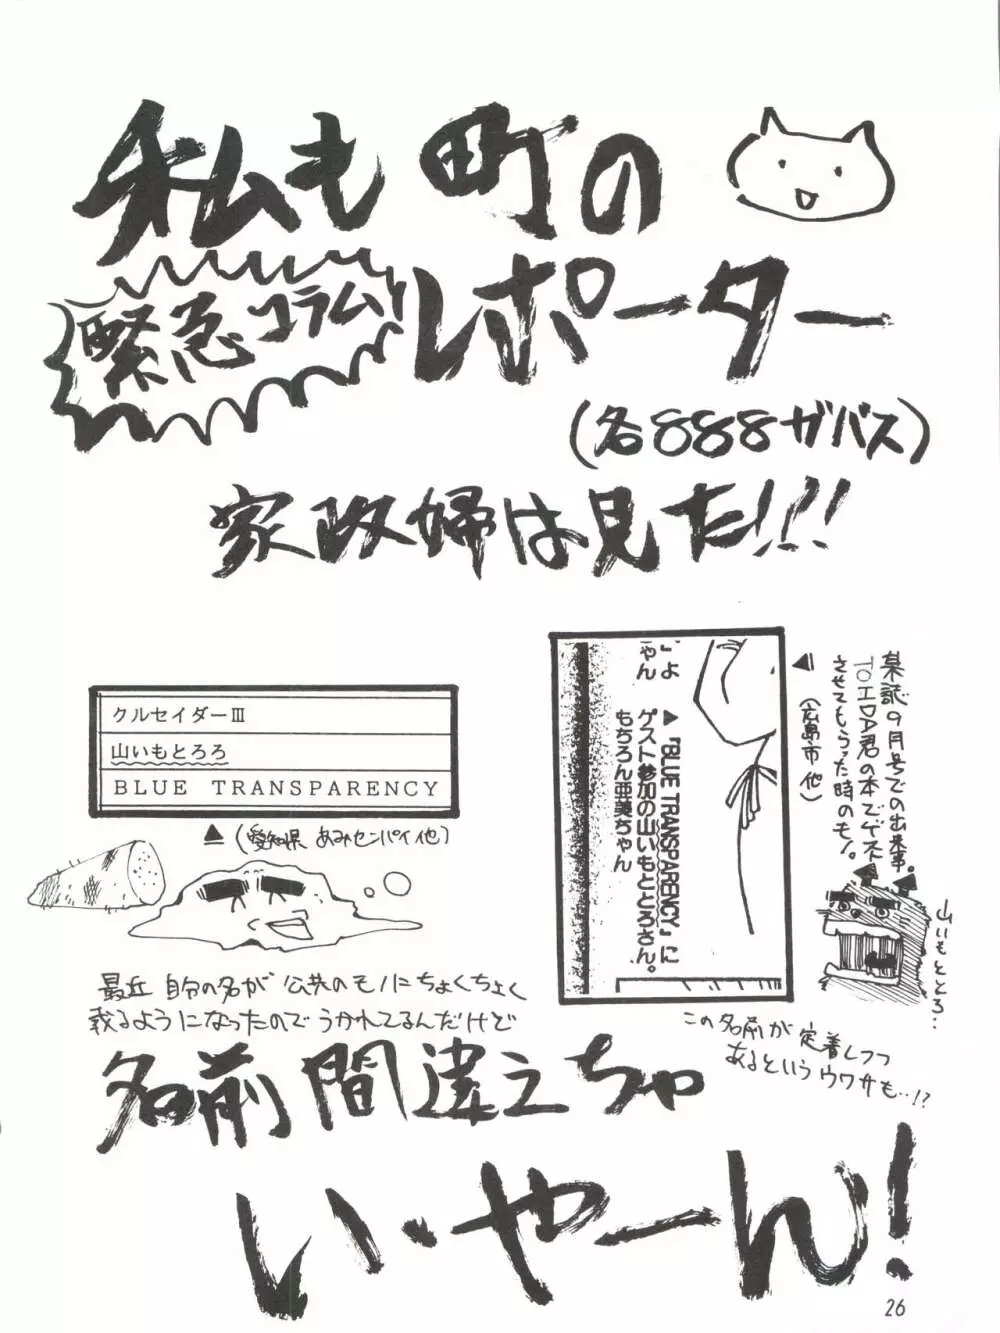 私も町の
レポーター
緊急コラム
(名888ガバス)
家政婦は見た!!!
クルセイダーⅢ
山いもとろろ
BLUE TRANSPARENCY
▲(愛知県 あみセンパイ他)
」よ
ゃん
▲『BLUE TRANSPARENCY』に
ゲスト参加の山いもととろさん。
もちろん亜美ちゃん
某誌9月号での出来事。
TOIDA君の本でゲスト
させてもらった時のモノ。
▲(広島市 他)
山いもととろ…
この名前が定着しつつ
あるというウワサも…!?
最近 自分の名が 公共のモノにちょくちょく
載るようになったので うかれてるんだけど
名前間違えちゃ
い・やーん!
26